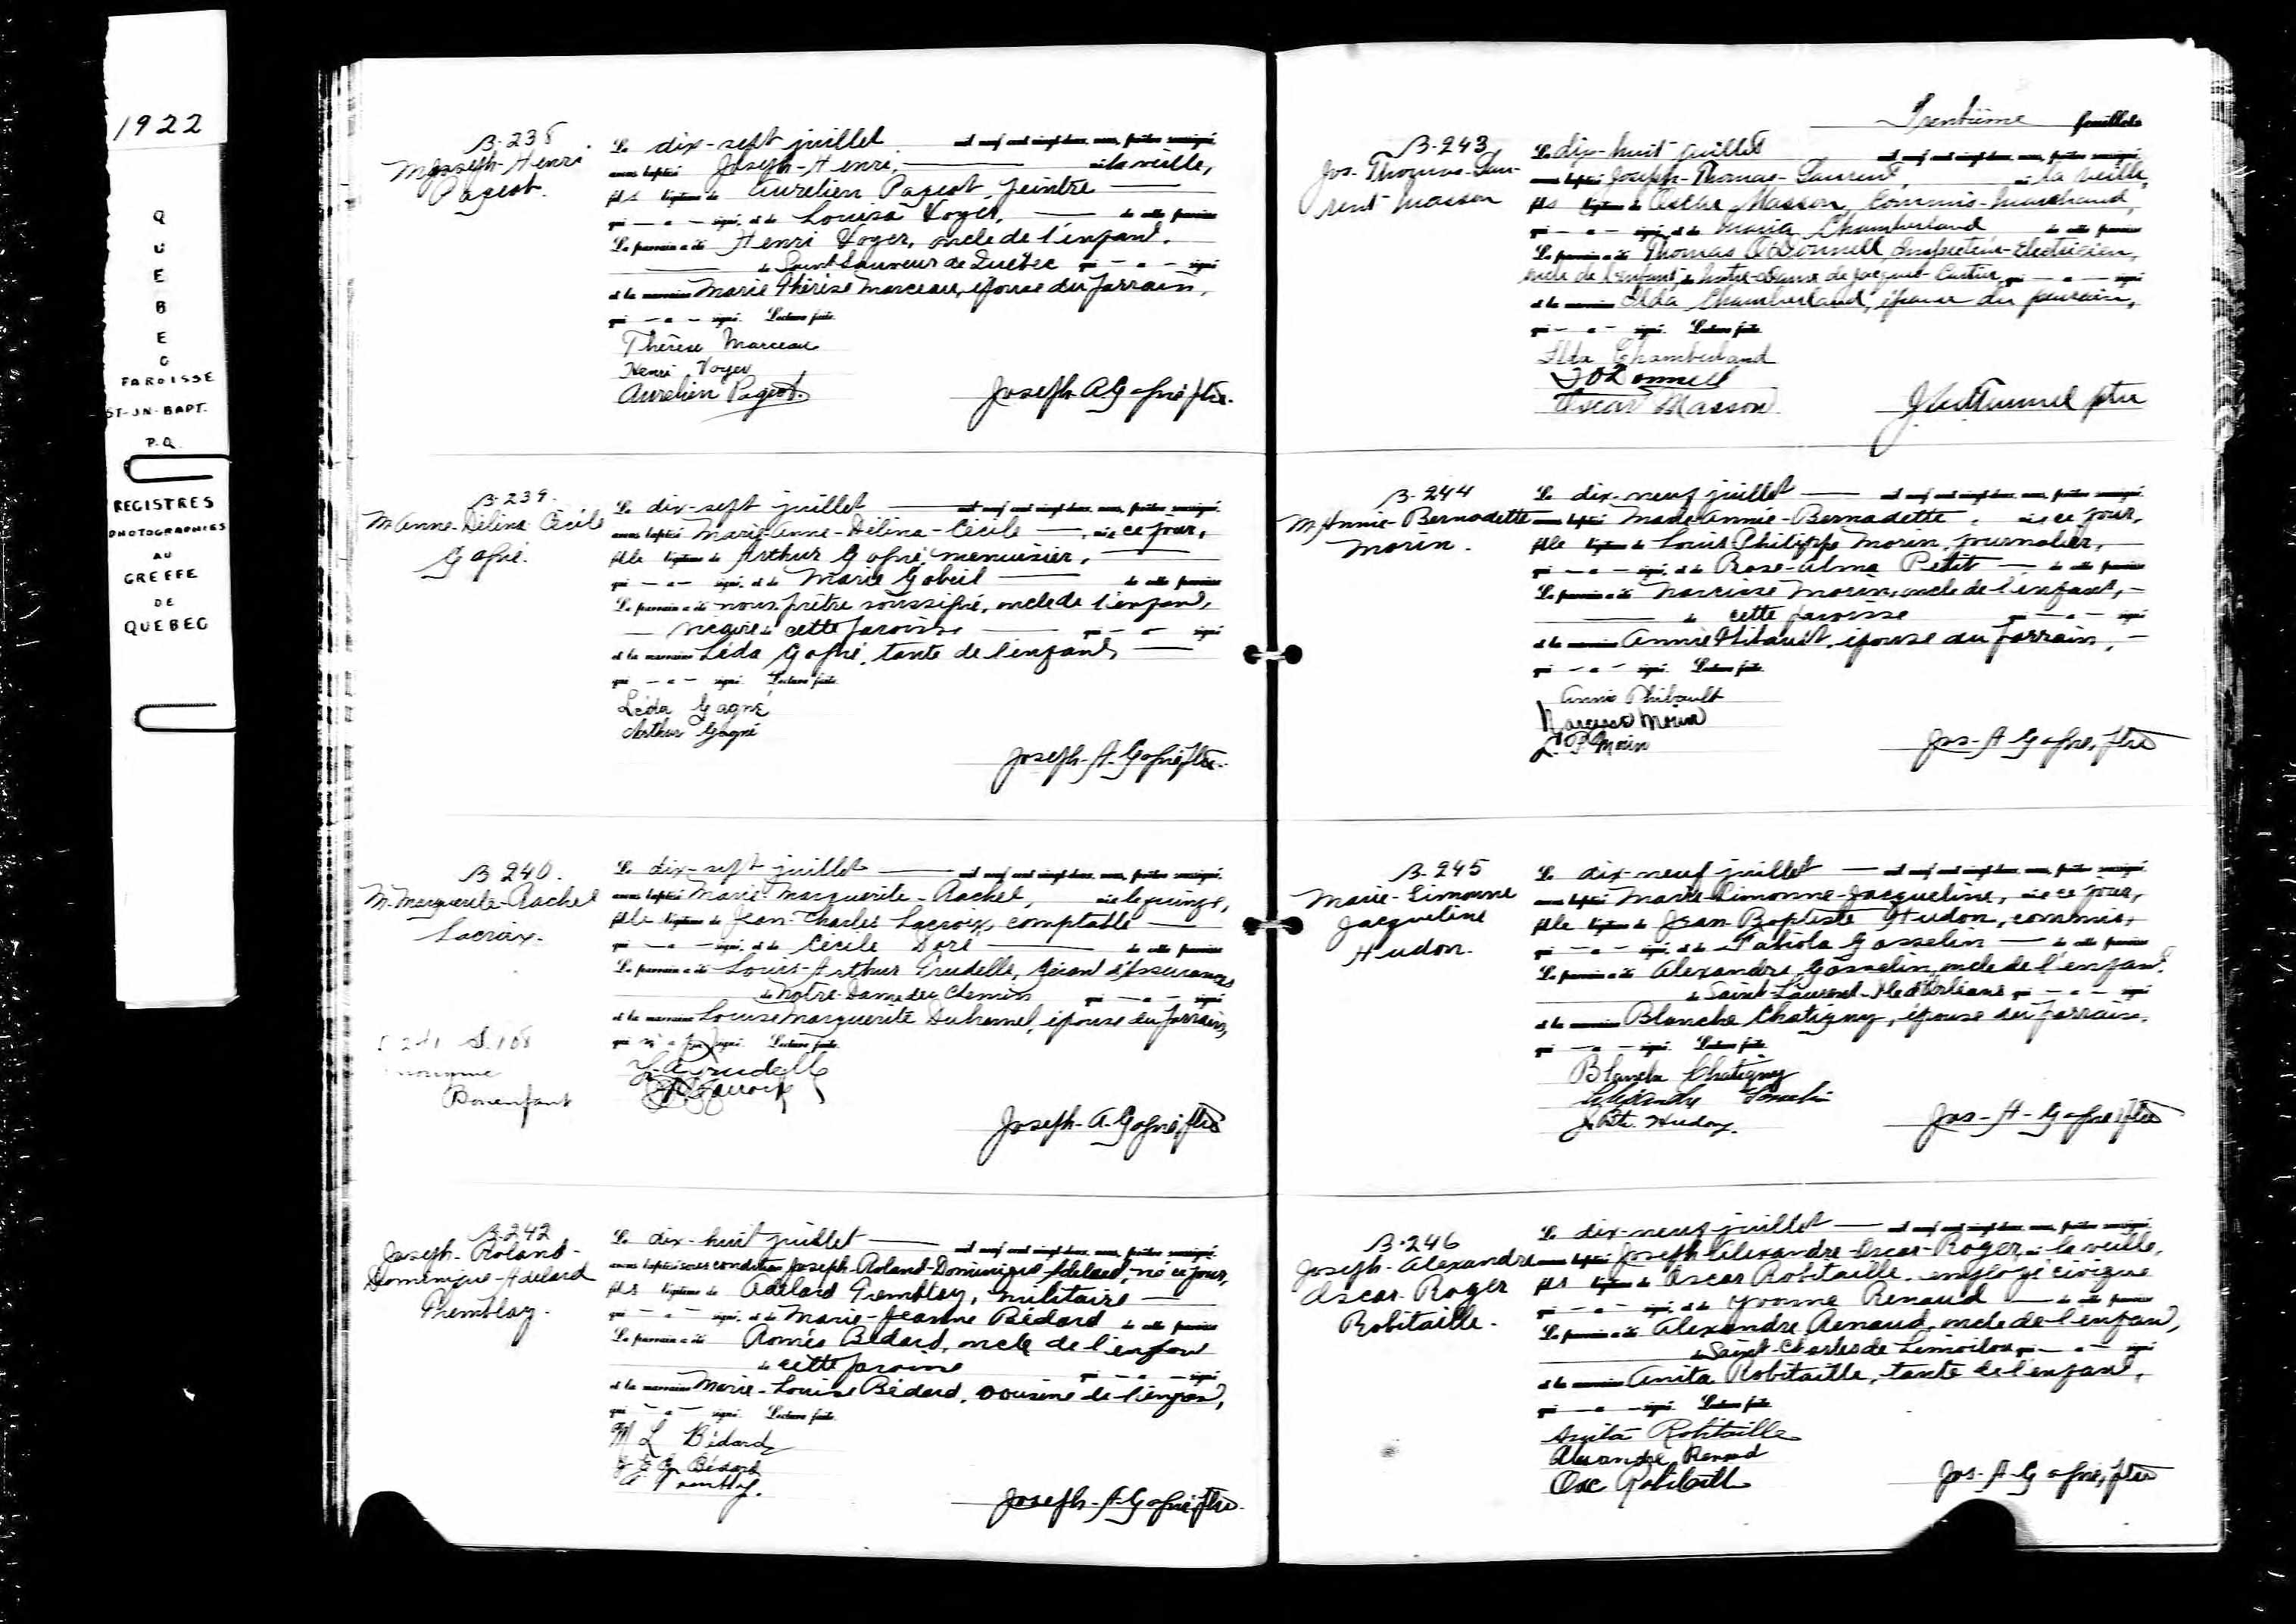 1922
QUEBEC
PAROISSE
ST-JN-BAPT.
P.Q.
REGISTRES
PHOTOGRAPHIES
AU
GREFFE
DE
QUEBEC
B-238
Joseph-Henri
Pageot.
Le dix-sept juillet mil neuf cent vingt-deux, nous, prêtre soussigné,
avons baptisé Joseph-Henri, né la veille,
fils légitime de Aurélien Pageot, peintre
qui - a - signé, et de Louisa Voyer, de cette paroisse
Le parrain a été Henri Voyer, oncle de l'enfant,
de Saint Sauveur de Québec qui - a - signé
et la marraine Marie Thérèse Marceau, épouse du parrain,
qui - a - signé. Lecture faite.
Thérèse Marceau
Henri Voyer
Aurélien Pageot.
Joseph-A Gagné ptre.
B-239.
M Anne-Délina Cécile
Gagné.
Le dix-sept juillet mil neuf cent vingt-deux, nous, prêtre soussigné,
avons baptisé Marie-Anne-Délina-Cécile, née ce jour,
fille légitime de Arthur Gagné, menuisier,
qui - a - signé, et de Marie Gobeil de cette paroisse
Le parrain a été nous prêtre soussigné, oncle de l'enfant,
vicaire de cette paroisse qui - a - signé
et la marraine Léda Gagné, tante de l'enfant
qui - a - signé. Lecture faite.
Léda Gagné
Arthur Gagné
Joseph-A-Gagné, ptre.
B 240.
M-Marguerite-Rachel
Lacroix.
Le dix-sept juillet mil neuf cent vingt-deux, nous, prêtre soussigné,
avons baptisé Marie-Marguerite-Rachel, née le quinze,
fille légitime de Jean-Charles Lacroix, comptable
qui - a - signé, et de Cécile Doré de cette paroisse
Le parrain a été Louis-Arthur Trudelle, gérant d'Assurances
de Notre-Dame du Chemin qui - a - signé
et la marraine Louise Marguerite Duhamel, épouse du parrain,
qui n'a pas signé. Lecture faite.
241 S.108
Bonenfant
Joseph-A-Gagné, ptre
B-242
Joseph-Roland-
Dominique-Adélard
Tremblay.
Le dix-huit juillet mil neuf cent vingt-deux, nous, prêtre soussigné,
avons baptisé sous condition Joseph-Roland-Dominique Adélard, né ce jour,
fils légitime de Adélard Tremblay, militaire
qui - a - signé, et de Marie-Jeanne Bédard de cette paroisse
Le parrain a été Roméo Bédard, oncle de l'enfant
de cette paroisse qui - a - signé
et la marraine Marie-Louise Bédard, cousine de l'enfant,
qui - a - signé. Lecture faite.
M L Bédard
Bédard
A Tremblay.
Joseph-A-Gagné ptre.
Trentième feuillet
B-243
Jos-Thomas-Lau-
rent Masson
Le dix-huit juillet mil neuf cent vingt-deux, nous, prêtre soussigné,
avons baptisé Joseph-Thomas-Laurent, né la veille,
fils légitime de Oscar Masson, Commis-marchand,
qui - a - signé, et de Maria Chamberland de cette paroisse
Le parrain a été Thomas O'Donnell, Inspecteur-Electricien,
oncle de l'enfant, de Notre-Dame de Jacques-Cartier, qui - a - signé
et la marraine Ilda Chamberland, épouse du parrain,
qui - a - signé. Lecture faite.
Ilda Chamberland
T O'Donnell
Oscar Masson
ptre
B-244
M Annie-Bernadette
Morin.
Le dix-neuf juillet mil neuf cent vingt-deux, nous, prêtre soussigné,
avons baptisé Marie-Annie-Bernadette, née ce jour,
fille légitime de Louis Philippe Morin, journalier,
qui - a - signé, et de Rose-Alma Petit de cette paroisse
Le parrain a été Narcisse Morin, oncle de l'enfant,
de cette paroisse qui - a - signé
et la marraine Annie Thibault, épouse du parrain,
qui - a - signé. Lecture faite.
Annie Thibault
Narcisse Morin
L. P Morin
Jos-A Gagné, ptre
B-245
Marie-Simonne
Jacqueline
Hudon.
Le dix-neuf juillet mil neuf cent vingt-deux, nous, prêtre soussigné,
avons baptisé Marie-Simonne-Jacqueline, née ce jour,
fille légitime de Jean-Baptiste Hudon, commis,
qui - a - signé, et de Fabiola Gosselin de cette paroisse
Le parrain a été Alexandre Gosselin, oncle de l'enfant,
de Saint-Laurent-Ile d'Orléans qui - a - signé
et la marraine Blanche Chatigny, épouse du parrain,
qui - a - signé. Lecture faite.
Blanche Chatigny
Alexandre Gosselin
J Bte. Hudon.
Jos-A-Gagné, ptre
B-246
Joseph-Alexandre
Oscar-Roger
Robitaille.
Le dix-neuf juillet mil neuf cent vingt-deux, nous, prêtre soussigné,
avons baptisé Joseph-Alexandre-Oscar-Roger, né la veille,
fils légitime de Oscar Robitaille, employé civique
qui - a - signé, et de Yvonne Renaud de cette paroisse
Le parrain a été Alexandre Renaud, oncle de l'enfant,
de Saint-Charles de Limoilou qui - a - signé
et la marraine Anita Robitaille, tante de l'enfant,
qui - a - signé. Lecture faite.
Anita Robitaille
Alexandre Renaud
Osc Robitaille
Jos-A-Gagné, ptre